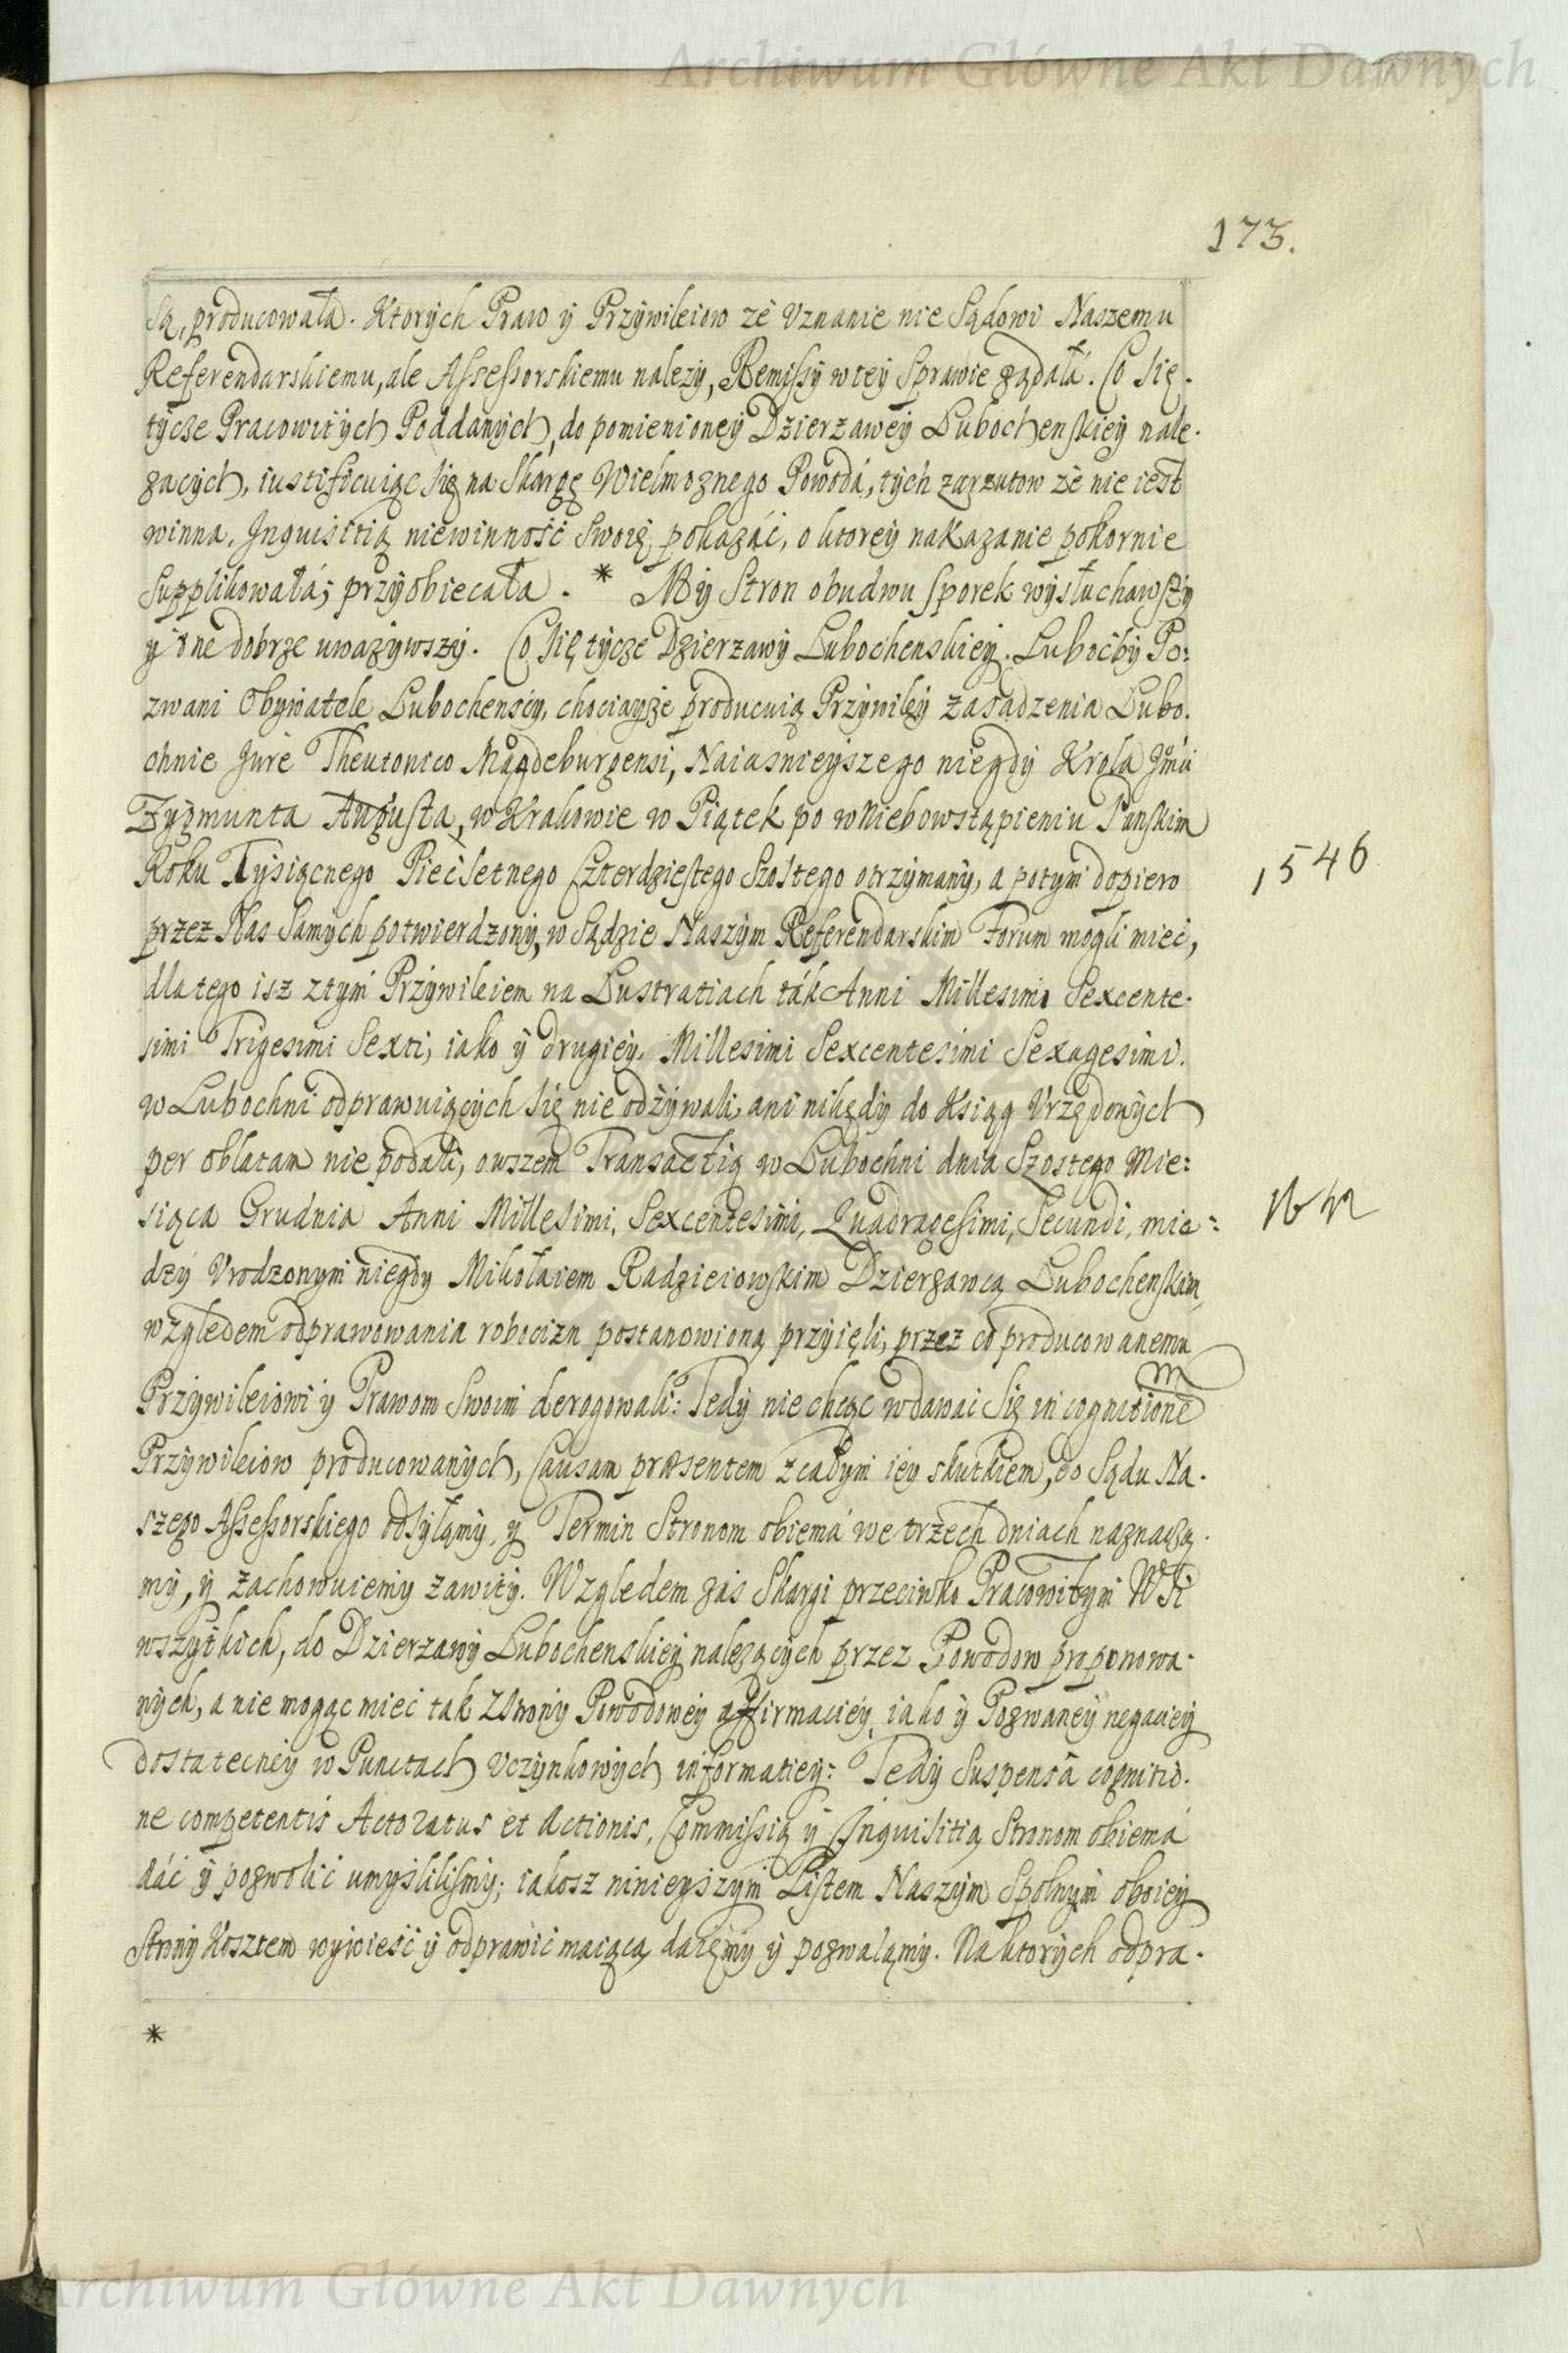 Archiwum Główne Akt Dawnych
173.
są, producowała. Ktorych Praw ÿ Przÿwileiow że Vznanie nie Sądowi Naszemu
Referendarskiemu, ale Assessorskiemu należÿ, Remissÿ wteÿ Sprawie żądała. Co się.
tÿcze Pracowitÿch Poddanÿch, do pomienioneÿ Dzierzaweÿ Lubochenskieÿ nale.
żącÿch, iustificuiąc się na Skargę Wielmożnego Powoda, tÿch zarzutow że nie iest
winna, Inquisitią niewinność Swoię pokazáć, o ktoreÿ nakazanie pokornie
Supplikowałá; przÿobiecała. * Mÿ Stron obudwu sporek wÿsłuchawszÿ
ÿ one dobrze uważÿwszÿ. Co się tÿcze Dzierzawÿ Lubochenskieÿ. Lubočbÿ Po:
zwani Obÿwatele Lubochenscÿ, chociaÿże producuią Przÿwileÿ zasadzenia Lubo.
chnie Jure Theutonico Magdeburgensi, Naiasnieÿszego niegdÿ Krola Jmci
Zÿgmunta Augusta, w Krakowie w Piątek po wNiebowstąpieniu Panskim
Roku Tÿsiącnego Piećsetnego Czterdziestego Szostego otrzÿmanÿ, a potÿm dopiero
1546
przez Nas Samÿch potwierdzonÿ, w Sądzie Naszÿm Referendarskim Forum mogli mieć,
dlatego isz ztÿm Przÿwileiem na Lustratiach ták Anni Millesimi Sexcente.
simi Trigesimi Sexti, iako ÿ drugieÿ. Millesimi Sexcentesimi Sexagesimi.
w Lubochni odprawuiącÿch się nie odżÿwali, ani nikędÿ do Ksiąg Vrzędowÿch
per oblatam nie podali, owszem Transactią w Lubochni dnia Szostego Mie:
siąca Grudnia Anni Millesimi, Sexcentesimi, Quadragesimi, Secundi, mie:
dzÿ Vrodzonÿm niegdÿ Mikołaiem Radzieiowskim Dzierżawcą Lubochenskim,
względem odprawowania robocizn postanowioną przÿięli, przez co producowanemu
Przÿwileiowi ÿ Prawom Swoim derogowali: Tedÿ nie chcąc wdawać się in cognitionem
Przÿwileiow producowanÿch, Causam præsentem zcałÿm ieÿ skutkiem, do Sądu Na.
szego Assessorskiego odsÿłamÿ, ÿ Termin Stronom obiema we trzech dniach naznacza.
mÿ, ÿ zachowuiemÿ zawitÿ. Względem zás Skargi przeciwko Pracowitÿm Wsi
wszÿtkich, do Dzierzawÿ Lubochenskieÿ należącÿch przez Powodow proponowa.
nÿch, a nie mogąc mieć tak zstronÿ Powodoweÿ affirmacieÿ, iako ÿ Pozwaneÿ negacieÿ
dostatecneÿ w Punctach Vczÿnkowÿch informatieÿ: Tedÿ Suspensâ cognitio.
ne competentis Actoratus et Actionis, Commissią ÿ Inquisitią Stronom obiema
dáć ÿ pozwolić umÿślilismÿ; iakosz ninieÿszÿm Listem Naszÿm Spolnÿm oboieÿ
Stronÿ Kosztem wÿwieść ÿ odprawić maiącą daięmÿ ÿ pozwalamÿ. Na ktorÿch odpra.
*
Archiwum Główne Akt Dawnych